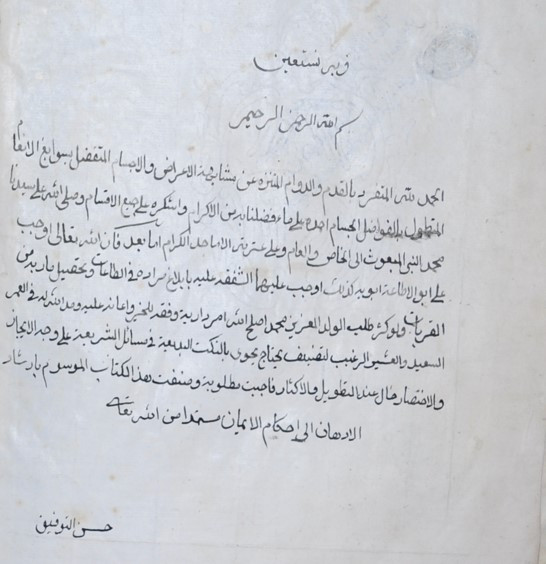 وبه نستعين
بسم الله الرحمن الرحيم
الحمد لله المتفرد بالقدم والدوام المنزه عن مشابهة الاعراض والاجسام المتفضل بسوابغ الانعام
المتطول بالفواضل الجسام احمده على ما فضلنا به من الاكرام واشكره على جميع الاقسام وصلى الله على سيدنا
محمد النبى المبعوث الى الخاص والعام وعلى عترته الاماجد الكرام اما بعد فان الله تعالى اوجب
على الولد طاعة ابويه كذلك اوجب عليهما الشفقة عليه بابلاغ مراده فى الطاعات وتحصيل مأربه من
القربات ولما كثر طلب الولد العزيز محمد اصلح الله امر داريه ووفقه للخير واعانه عليه ومد الله له فى العمر
السعيد والعيش الرغيد لتصنيف كتاب يحوى النكت البديعة فى مسائل الشريعة على وجه الايجاز
والاختصار خال عن التطويل والاكثار فاجبت مطلوبه وصنفت هذا الكتاب الموسوم بارشاد
الاذهان الى احكام الايمان مستمدا من الله تعالى
حسن التوفيق